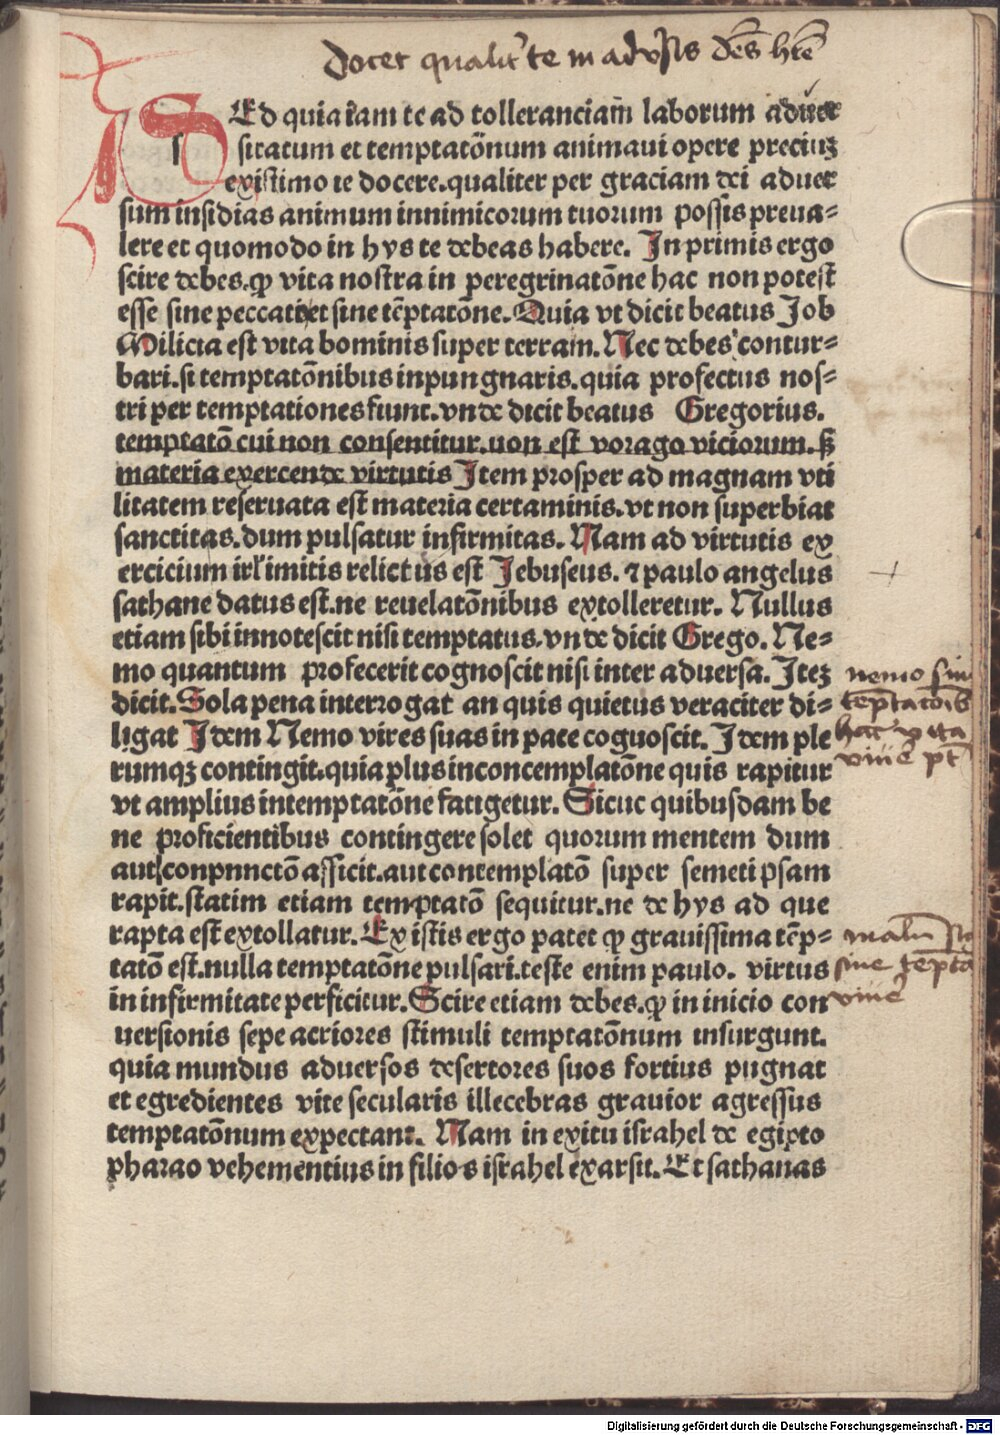 docet qualit' te in adv'sis debes h're
SEd quia iam te ad tolleranciam laborum aduer
sitatum et temptatõnum animaui opere preciuʒ
existimo te docere.qualiter per graciam dei aduer
sum insidias animum innimicorum tuorum possis preua⸗
lere et quomodo in hys te debeas habere. In primis ergo
scire debes.ꝙ vita nostra in peregrinatõne hac non potest
esse sine peccatis et sine tẽptatõne. Quia vt dicit beatus Job
Milicia est vita hominis super terram. Nec debes contur⸗
bari.si temptatõnibus inpungnaris.quia profectus nos⸗
tri per temptationes fiunt.vnde dicit beatus Gregorius.
temptatõ cui non consentitur.uon est vorago viciorum.ꝭ
materia exercende virtutis Item prosper ad magnam vti
litatem reseruata est materia certaminis.vt non superbiat
sanctitas.dum pulsatur infirmitas. Nam ad virtutis ex
ercicium irl'imitis relictus est Jebuseus. ⁊ paulo angelus
sathane datus est.ne reuelatõnibus extolleretur. Nullus
etiam sibi innotescit nisi temptatus.vnde dicit Grego. Ne⸗
mo quantum profecerit cognoscit nisi inter aduersa. Iteʒ
dicit. Sola pena interrogat an quis quietus veraciter di⸗
ligat Idem Nemo vires suas in pace coguoscit. Idem ple
rumqʒ contingit.quia plus inconcemplatõne quis rapitur
vt amplius intemptatõne fatigetur. Sicuc quibusdam be
ne proficientibus contingere solet quorum mentem dum
aut conpnnctõ afficit.aut contemplatõ super semetipsam
rapit.statim etiam temptatõ sequitur.ne de hys ad que
rapta est extollatur. Ex istis ergo patet ꝙ grauissima tẽp⸗
tatõ est.nulla temptatõne pulsari.teste enim paulo. virtus
in infirmitate perficitur. Scire etiam debes.ꝙ in inicio con
uersionis sepe acriores stimuli temptatõnum insurgunt.
quia mundus aduersos desertores suos fortius pugnat
et egredientes vite secularis illecebras grauior agressus
temptatõnum expectant. Nam in exitu israhel de egipto
pharao vehementius in filios israhel exarsit. Et sathanas
nemo sin
tẽptatõib
hac vita
viue pt
malũ
sine tẽpta
viue
Digitalisierung gefördert durch die Deutsche Forschungsgemeinschaft - DFG